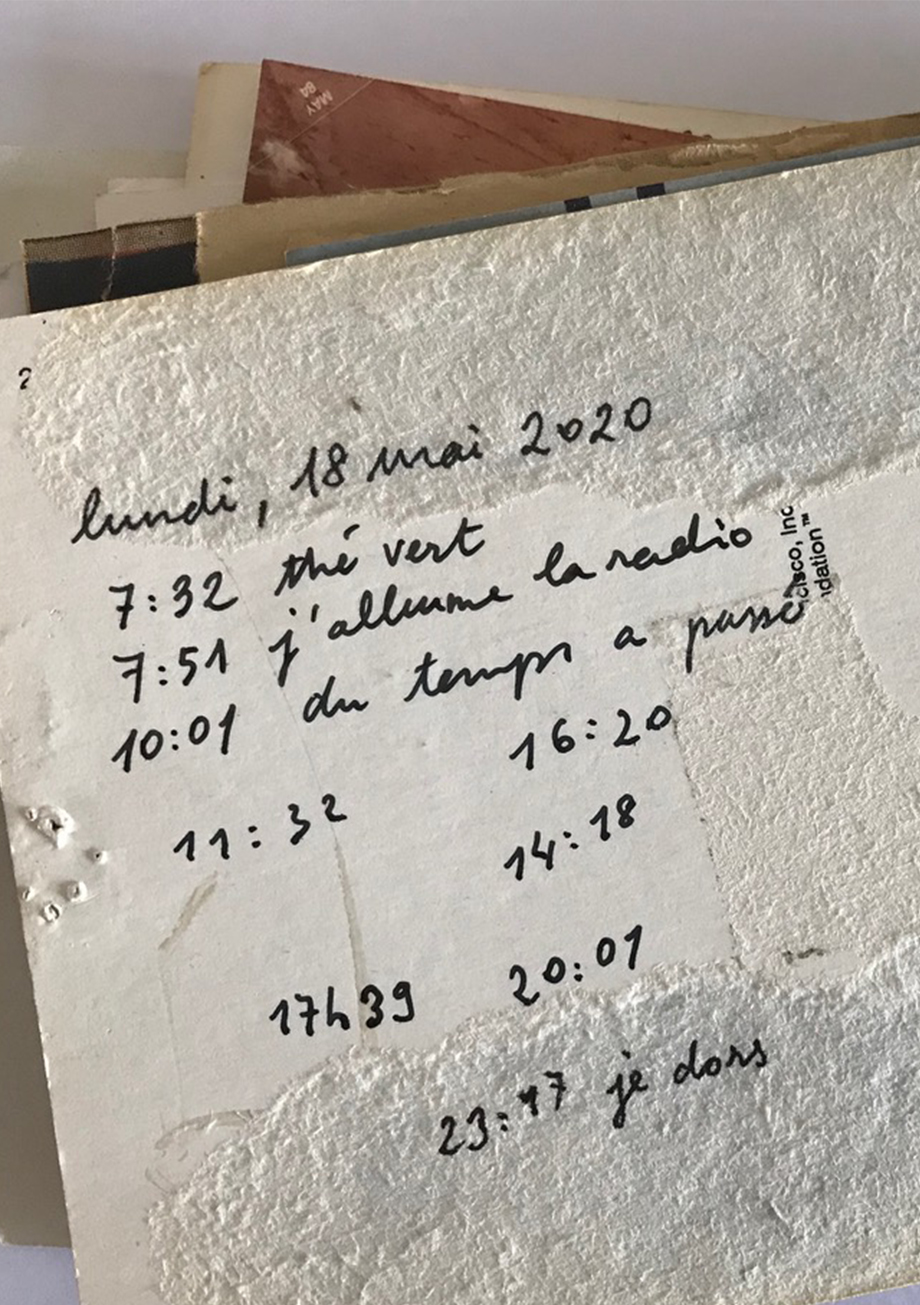 MAY
84
?
lundi, 18 mai 2020
7:32 thé vert
7:51 j'allume la radio
10:01 du temps a passé
16:20
11:32
14:18
17h39
20:01
23:17 je dors
cisco, Inc
dation™